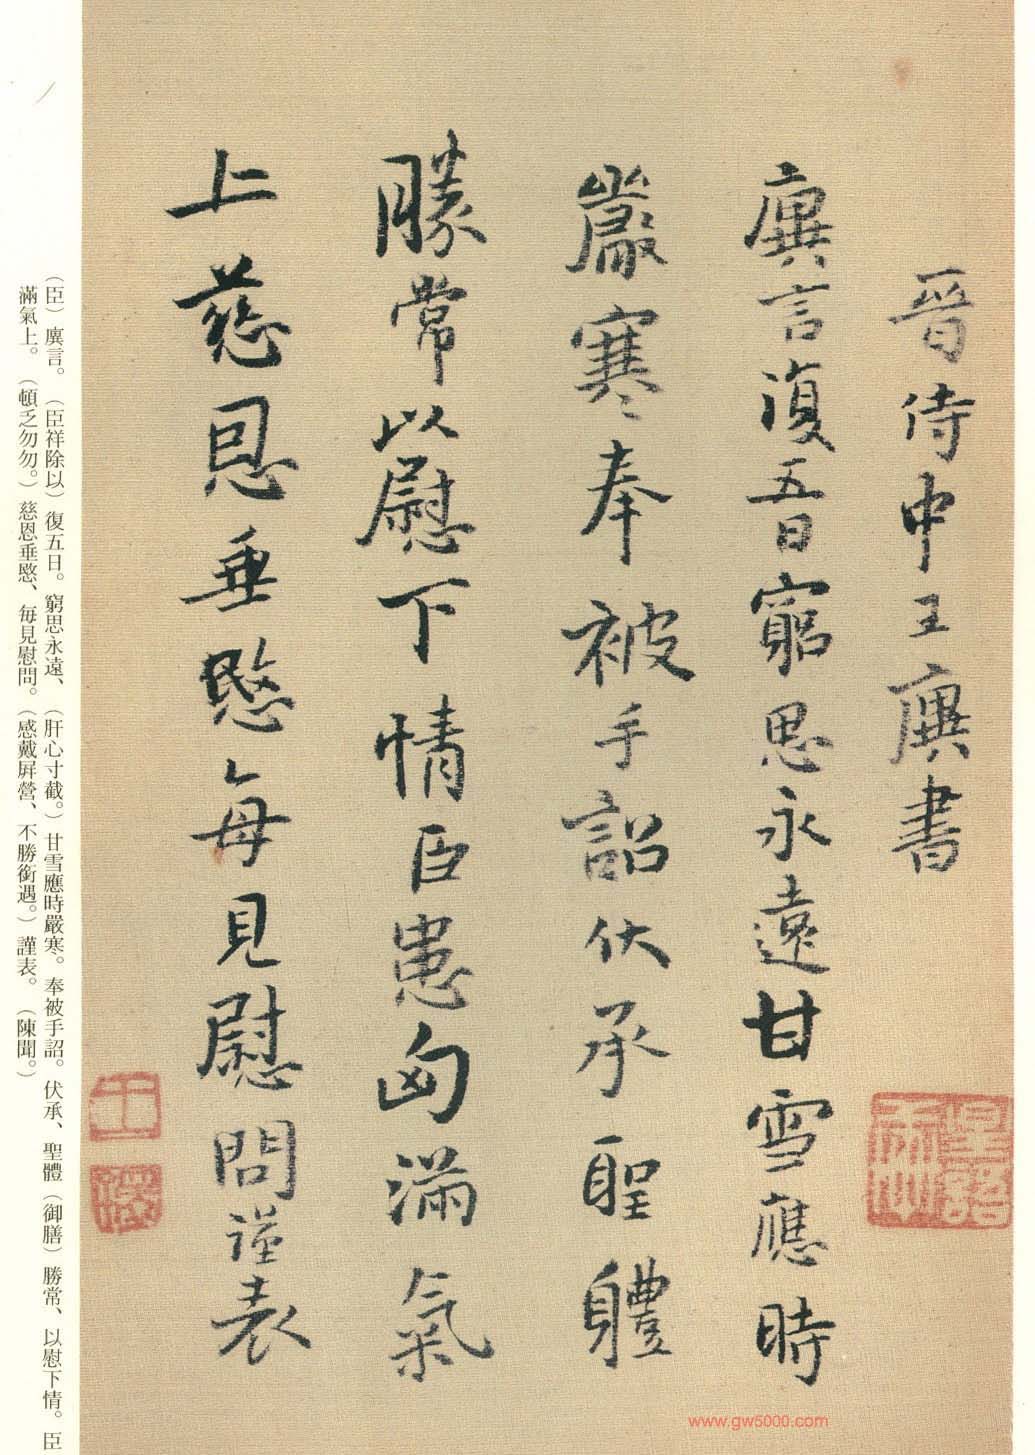 晉侍中王廙書
廙言復五日窮思永遠甘雪應時
嚴寒奉被手詔伏承聖體
勝常以慰下情臣患匈滿氣
上慈恩垂愍每見慰問謹表
(臣)廙言。(臣祥除以)復五日。窮思永遠、(肝心寸截。)甘雪應時嚴寒。奉被手詔。伏承、聖體(御膳)勝常、以慰下情。臣
滿氣上。(頓乏勿勿。)慈恩垂愍、每見慰問。(感戴屏營、不勝銜遇。)謹表。(陳聞。)
www.gw5000.com